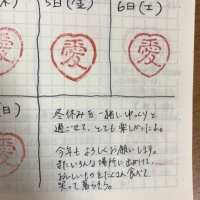 木)
5日(金)
6日(土)
愛
愛
日)
愛
冬休みを一緒にゆっくりと
過ごせて、とても楽しかったよ。
今年もよろしくお願いします。
またいろんな場所に出かけて、
おいしいものたくさん食べて、
笑って暮らそう。